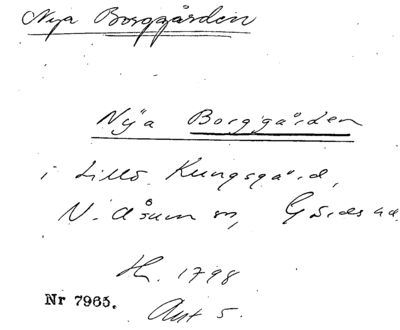 Nya Borggården
Nya Borggården
i Lillö Kungsgård,
N. Åsum sn, Gärds hd
Hl. 1798
Akt 5.
Nr 7965.